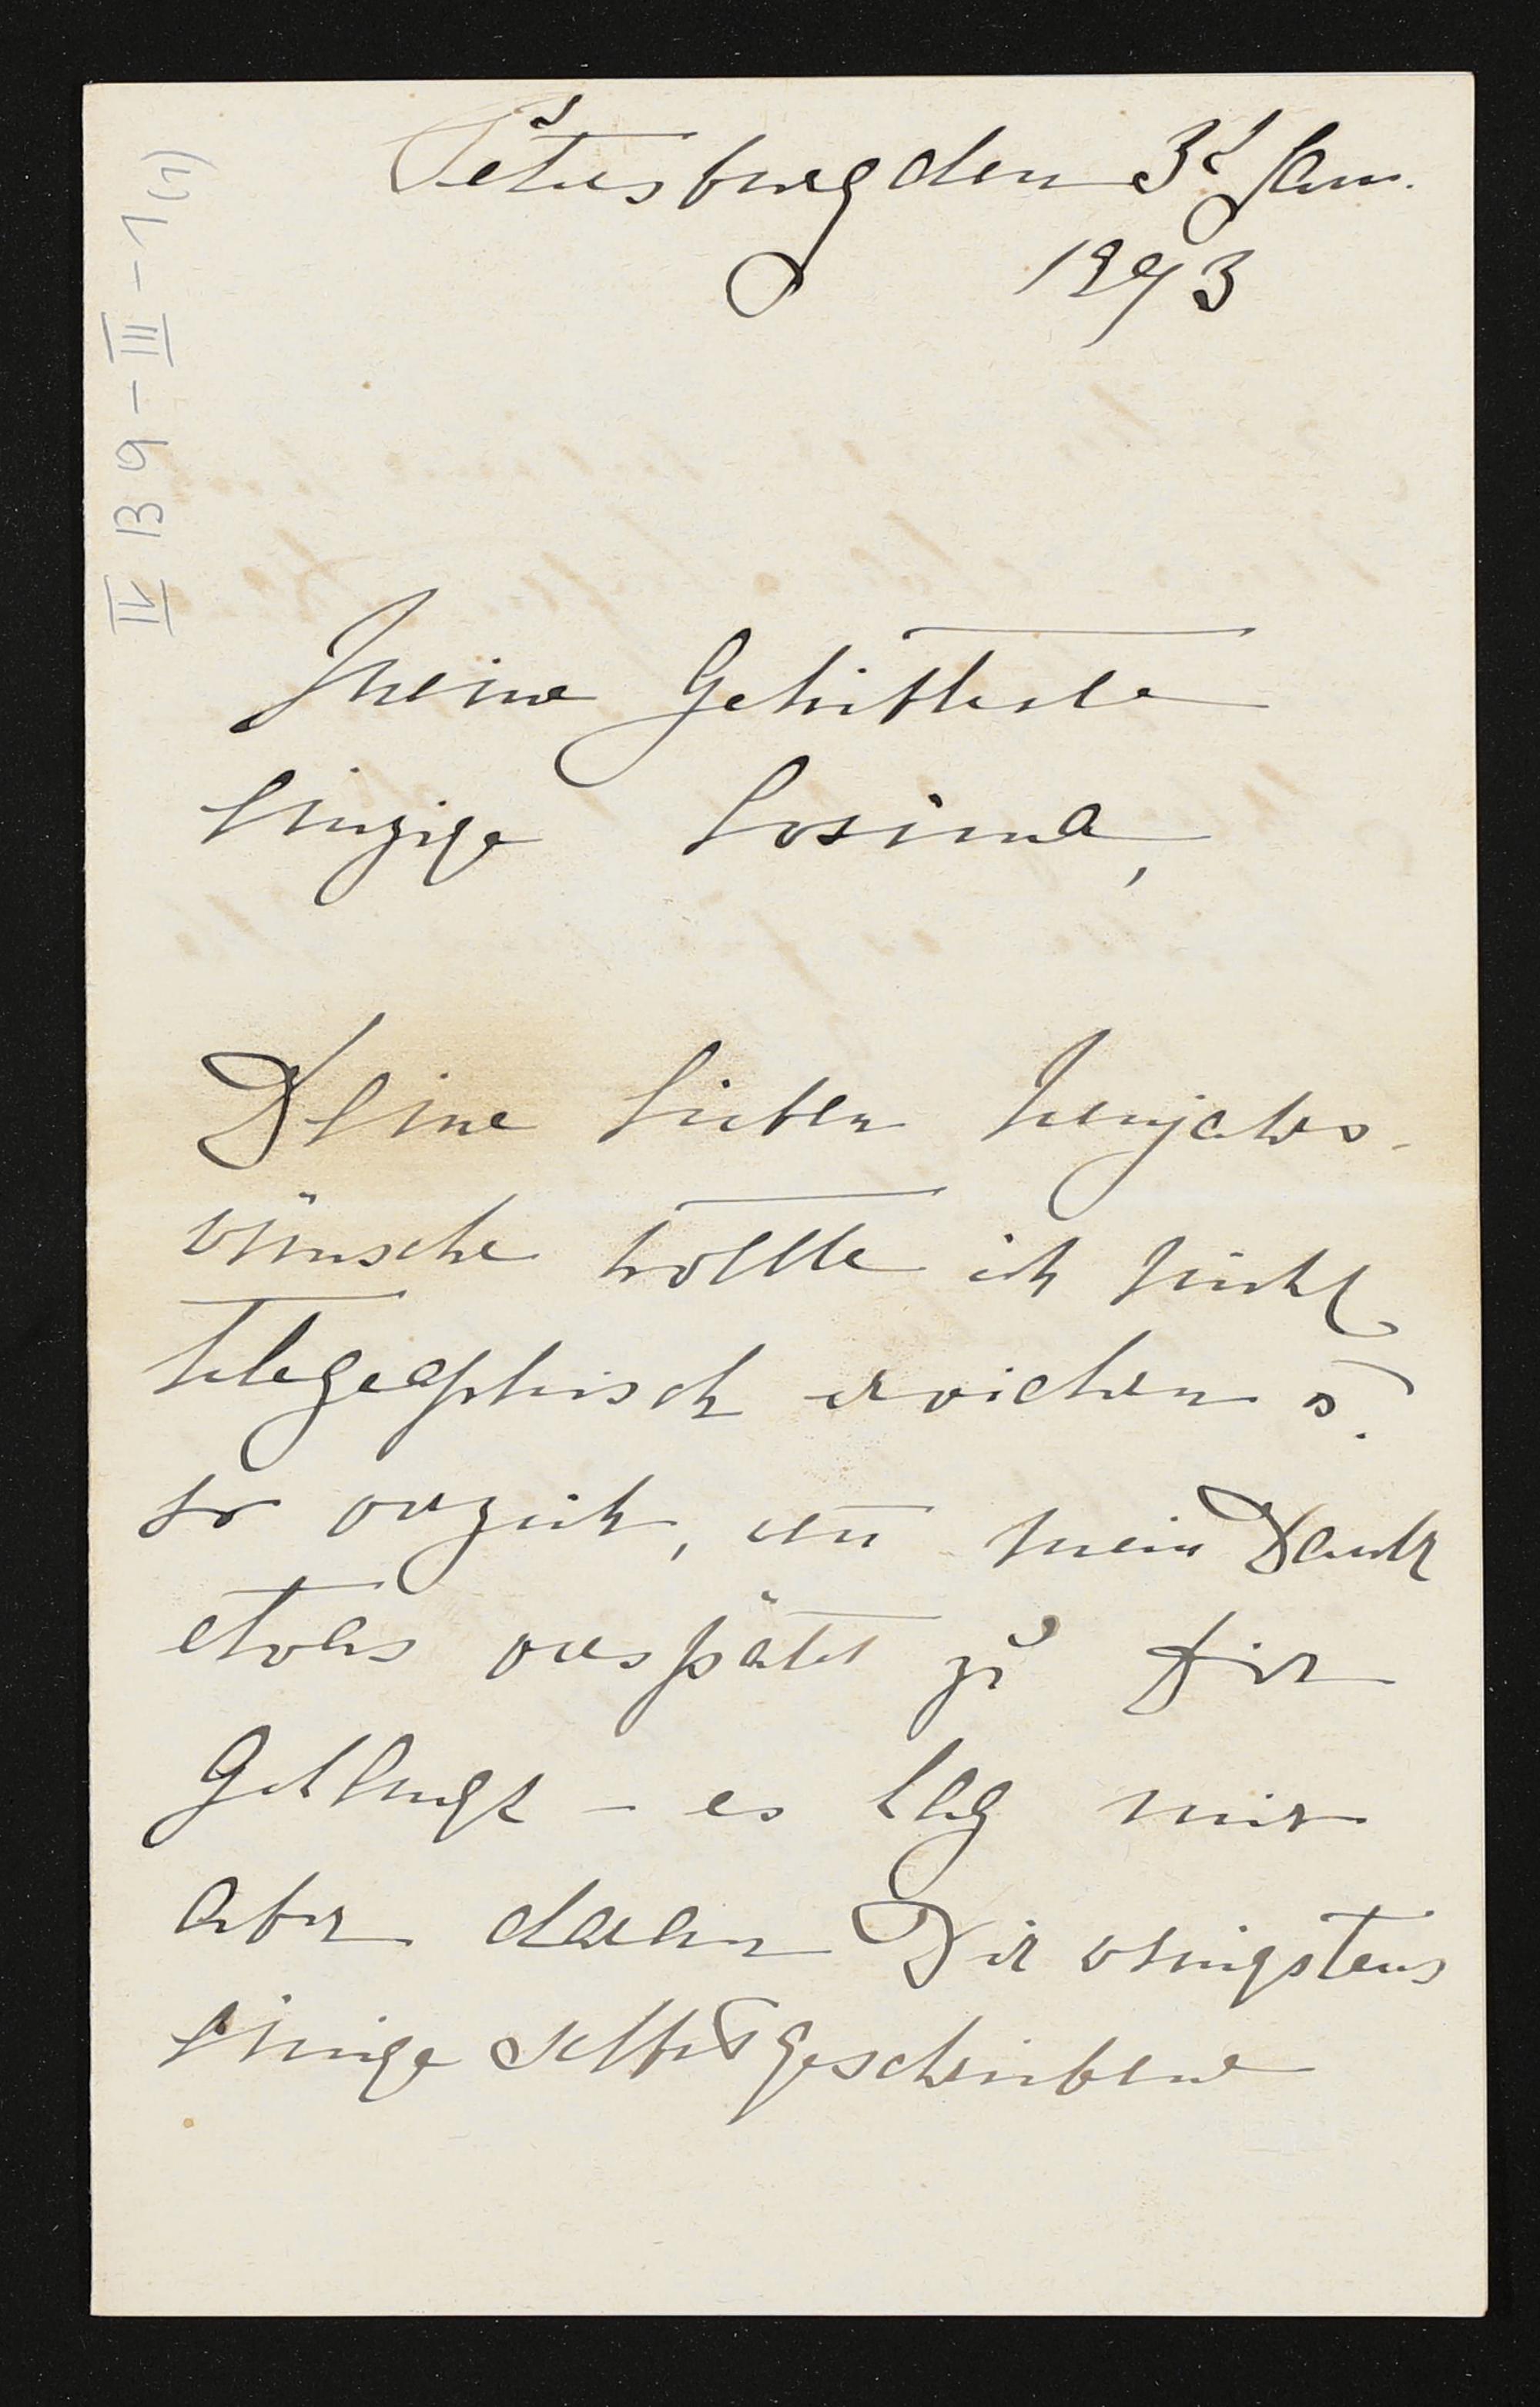 IV B 9 – III – 1 (1)
Petersburg den 3t Jan.
1893
Meine Geliebteste
Einzige Cosima,
Deine Lieben Neujahrs-
wünsche wollte ich Nicht
telegraphisch erwidern u.
so verzeih, wen̄ mein Dank
etwas verspätet zu Dir
Gelangt – es lag mir
aber daran Dir wenigstens
Einige selbst geschriebene